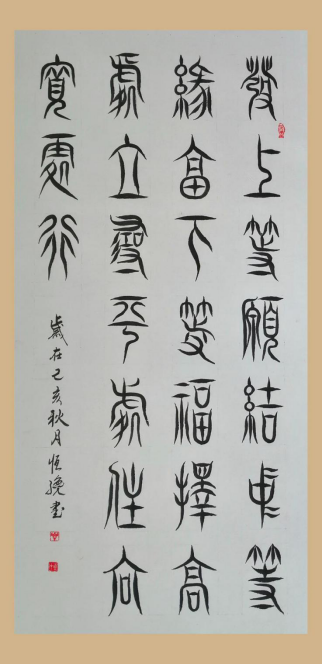 發上等願結中等
緣享下等福擇高
處立尋平處住向
寬處行
歲在己亥秋月恒書